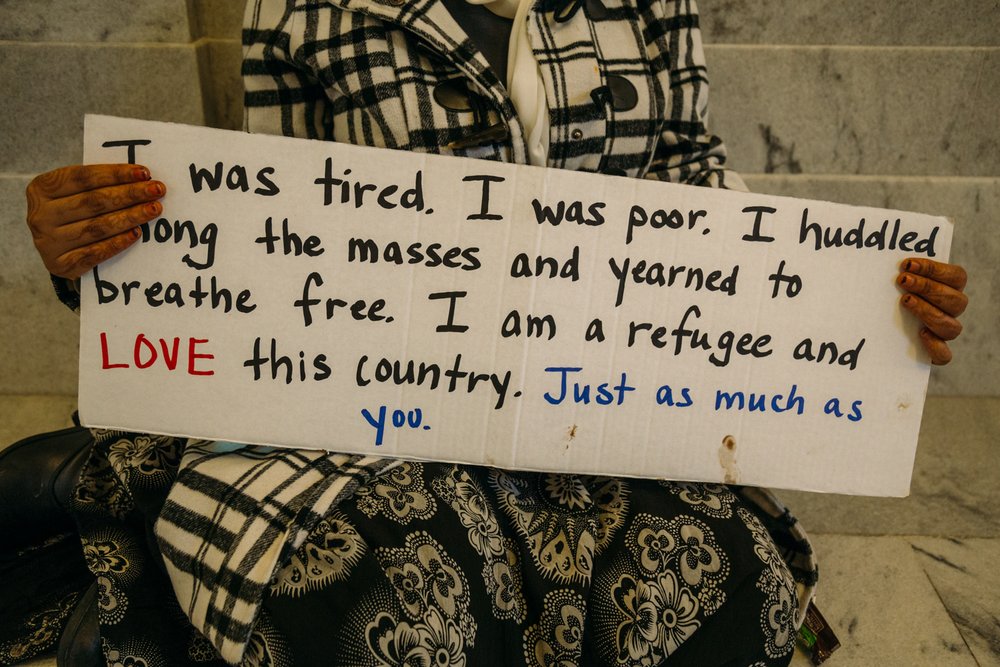 I was tired. I was poor. I huddled
mong the masses and yearned to
breathe free. I am a refugee and
LOVE this country. Just as much as
you.